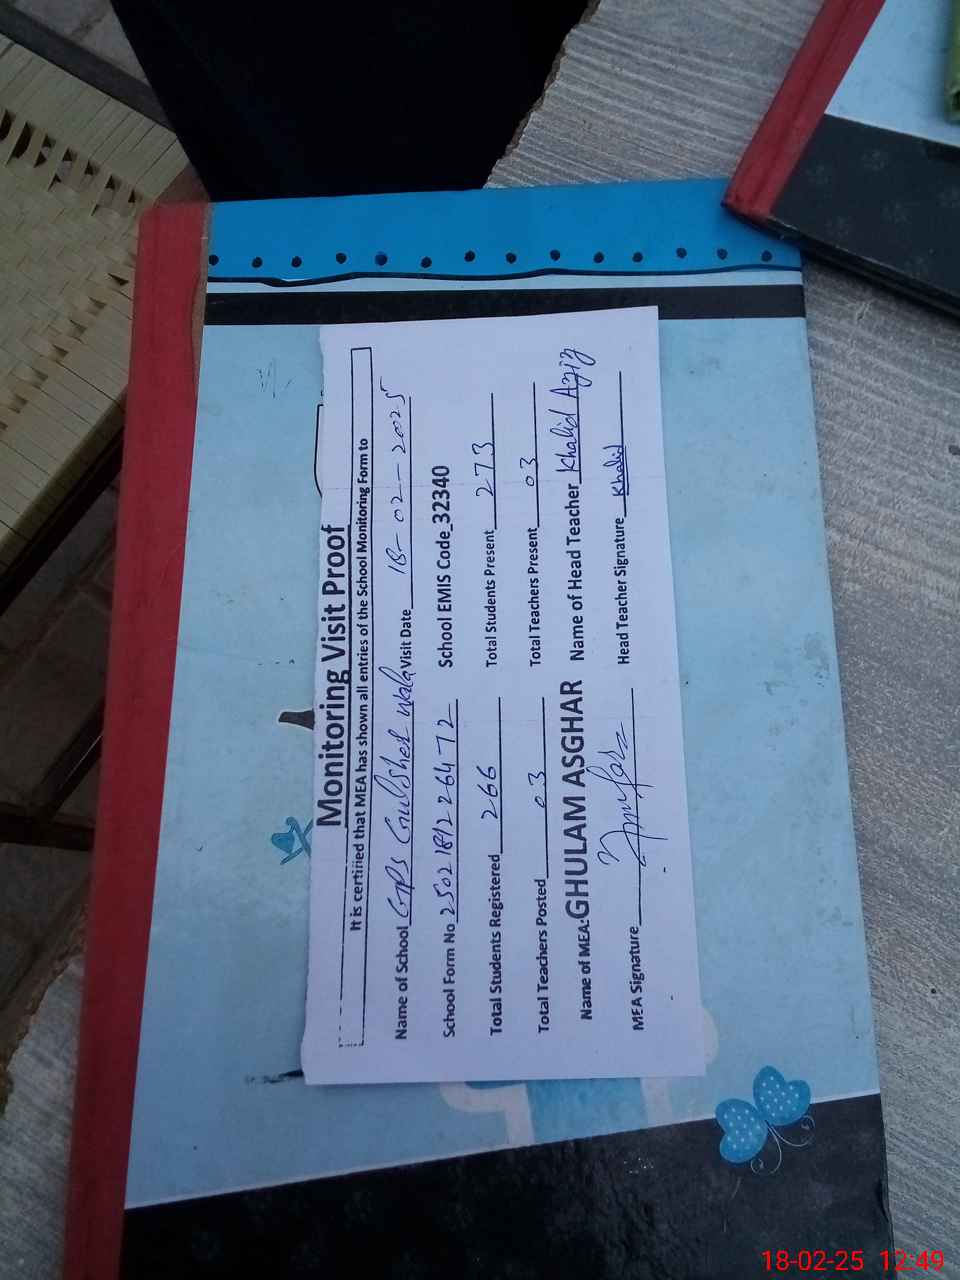 Monitoring Visit Proof
It is certified that MEA has shown all entries of the School Monitoring Form to
Name of School GPS Gulsher Wala Visit Date 18-02-2025
School Form No 2502181226472 School EMIS Code 32340
Total Students Registered 266 Total Students Present 273
Total Teachers Posted 03 Total Teachers Present 03
Name of MEA: GHULAM ASGHAR Name of Head Teacher Khalid Aziz
MEA Signature Head Teacher Signature Khalid
18-02-25 12:49